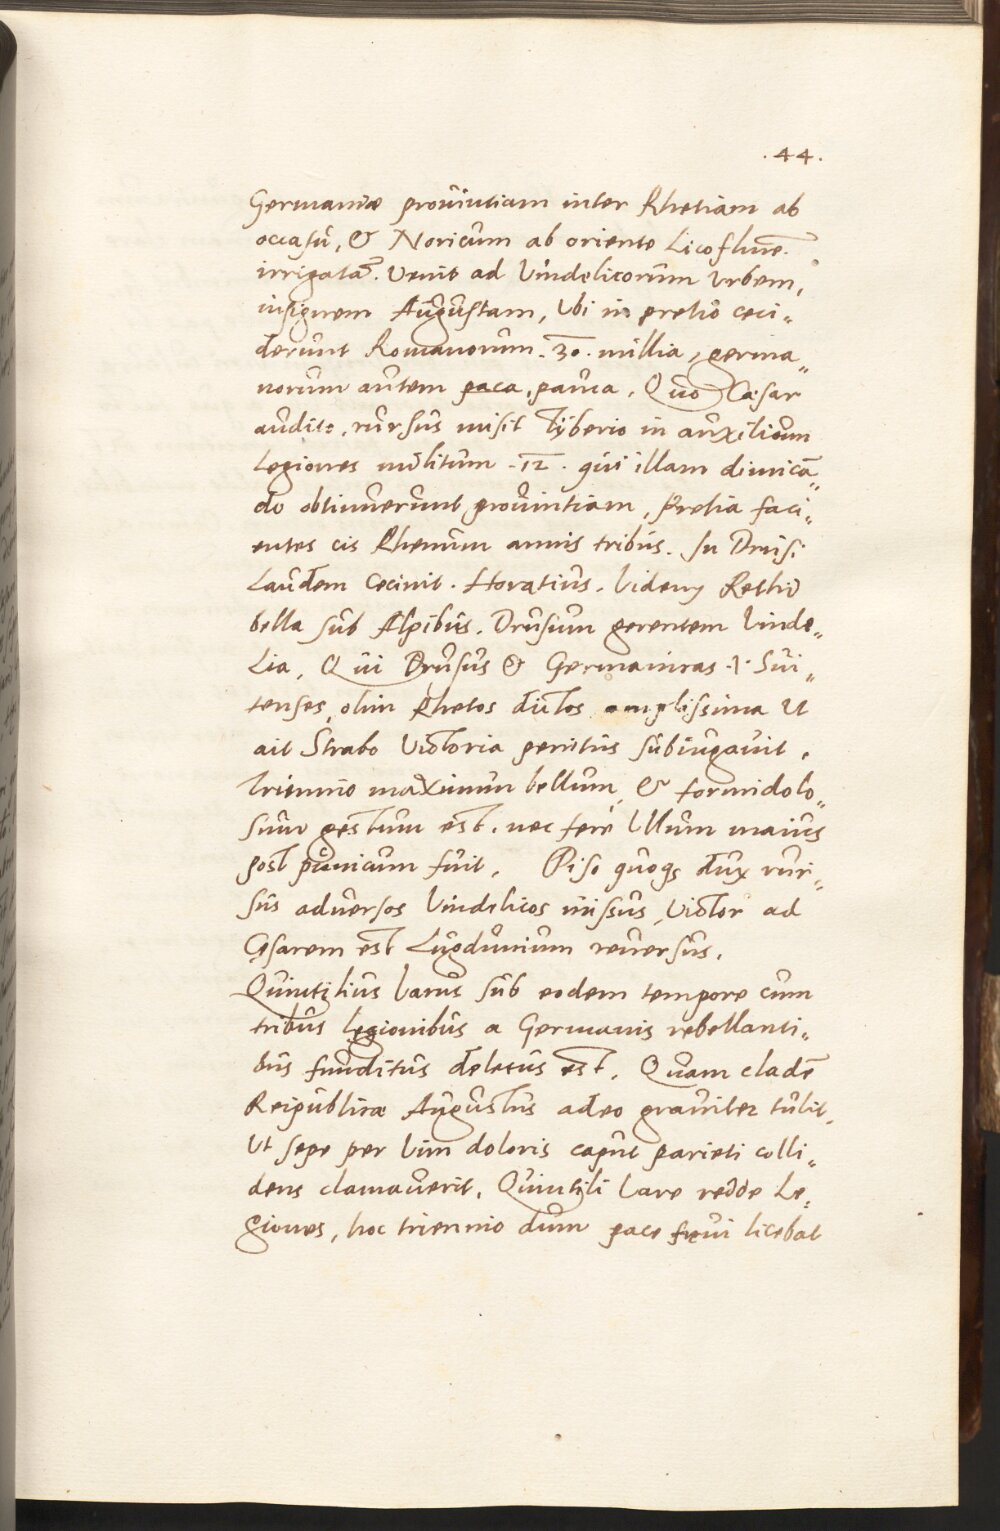 .44.
Germaniæ provintiam inter Rhetiam ab
occasu, & Noricum ab oriente Lico fluue.
irrigatã. Venit ad Vindelicorum Vrbem,
insignem Augustam, Vbi in prelio ceci„
derunt Romanorum .30. millia, germa„
norum autem paca, pauca. Quo Cæsar
audito, rursus misit Tyberio in auxilium
Legiones militum .12. qui illam dimicã„
do obtinuerunt prouintiam, Prelia faci„
entes cis Rhenum annis tribus. In Drusi
Laudem Cecinit. Horatius. Videny Rethi
bella sub Alpibus. Drusum gerentem Vinde„
Lia, Qui Drusus & Germaniras .1. Sui„
tenses, olim Rhetos dictos amplissima Ut
ait Strabo Victoria penitus subiugauit.
Triennio maximum bellum, & formidolo„
sum gestum est. nec ferè Vllum maius
post punicum fuit. Piso quoqȝ dux rur„
sus aduersos Vindelicos missus, Victor ad
Cęsarem est Lugdunium reuersus.
Quintilius Varus sub eodem tempore cum
tribus legionibus a Germanis rebellanti„
bus funditus deletus est. Quam cladẽ
Reipublicæ Augustus adeo grauiter tulit,
Ut sepe per Vim doloris caput parieti colli„
dens clamauerit. Quintili Vare redde Le„
giones, hoc triennio dum pace frui licebat